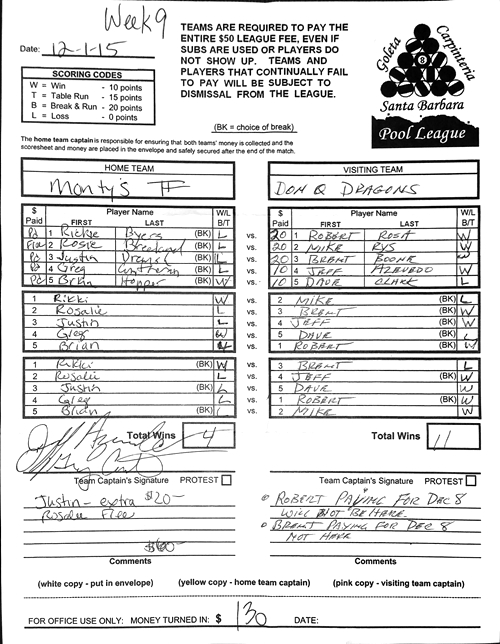 Week 9
Date: 12-1-15
TEAMS ARE REQUIRED TO PAY THE
ENTIRE $50 LEAGUE FEE, EVEN IF
SUBS ARE USED OR PLAYERS DO
NOT SHOW UP. TEAMS AND
PLAYERS THAT CONTINUALLY FAIL
TO PAY WILL BE SUBJECT TO
DISMISSAL FROM THE LEAGUE.
(BK = choice of break)
SCORING CODES
W = Win - 10 points
T = Table Run - 15 points
B = Break & Run - 20 points
L = Loss - 0 points
Goleta
Carpinteria
8
Santa Barbara
Pool League
The home team captain is responsible for ensuring that both teams' money is collected and the
scoresheet and money are placed in the envelope and safely secured after the end of the match.
HOME TEAM
Monty's TF
VISITING TEAM
DON Q DRAGONS
$ Paid Player Name FIRST LAST W/L B/T
$ Paid Player Name FIRST LAST W/L B/T
Pd 1 Rickie Byers (BK) L vs. 20 1 ROBERT ROSA W
2 Rosie L vs. 20 2 MIKE RYS W
Pd 3 Justin (BK) L vs. 20 3 BRANT BOONE W
Pd 4 Greg L vs. 10 4 JEFF AZEVEDO W
Pd 5 Brian Hopper (BK) W vs. 10 5 DAVE CLARK L
1 Rikki W vs. 2 MIKE (BK) L
2 Rosalie L vs. 3 BRANT (BK) W
3 Justin L vs. 4 JEFF (BK) W
4 Greg W vs. 5 DAVE (BK) L
5 Brian L vs. 1 ROBERT (BK) W
1 Rikki (BK) W vs. 3 BRANT L
2 Rosalie L vs. 4 JEFF (BK) W
3 Justin (BK) L vs. 5 DAVE W
4 Greg L vs. 1 ROBERT (BK) W
5 Brian (BK) L vs. 2 MIKE W
Total Wins 4
Total Wins 11
Team Captain's Signature PROTEST
Team Captain's Signature PROTEST
Justin - extra $20-
Rosalie Flee
$60-
ROBERT PAYING FOR DEC 8
WILL NOT BE HERE.
BRANT PAYING FOR DEC 8
NOT HERE
Comments
Comments
(white copy - put in envelope) (yellow copy - home team captain) (pink copy - visiting team captain)
FOR OFFICE USE ONLY: MONEY TURNED IN: $ 130 DATE: